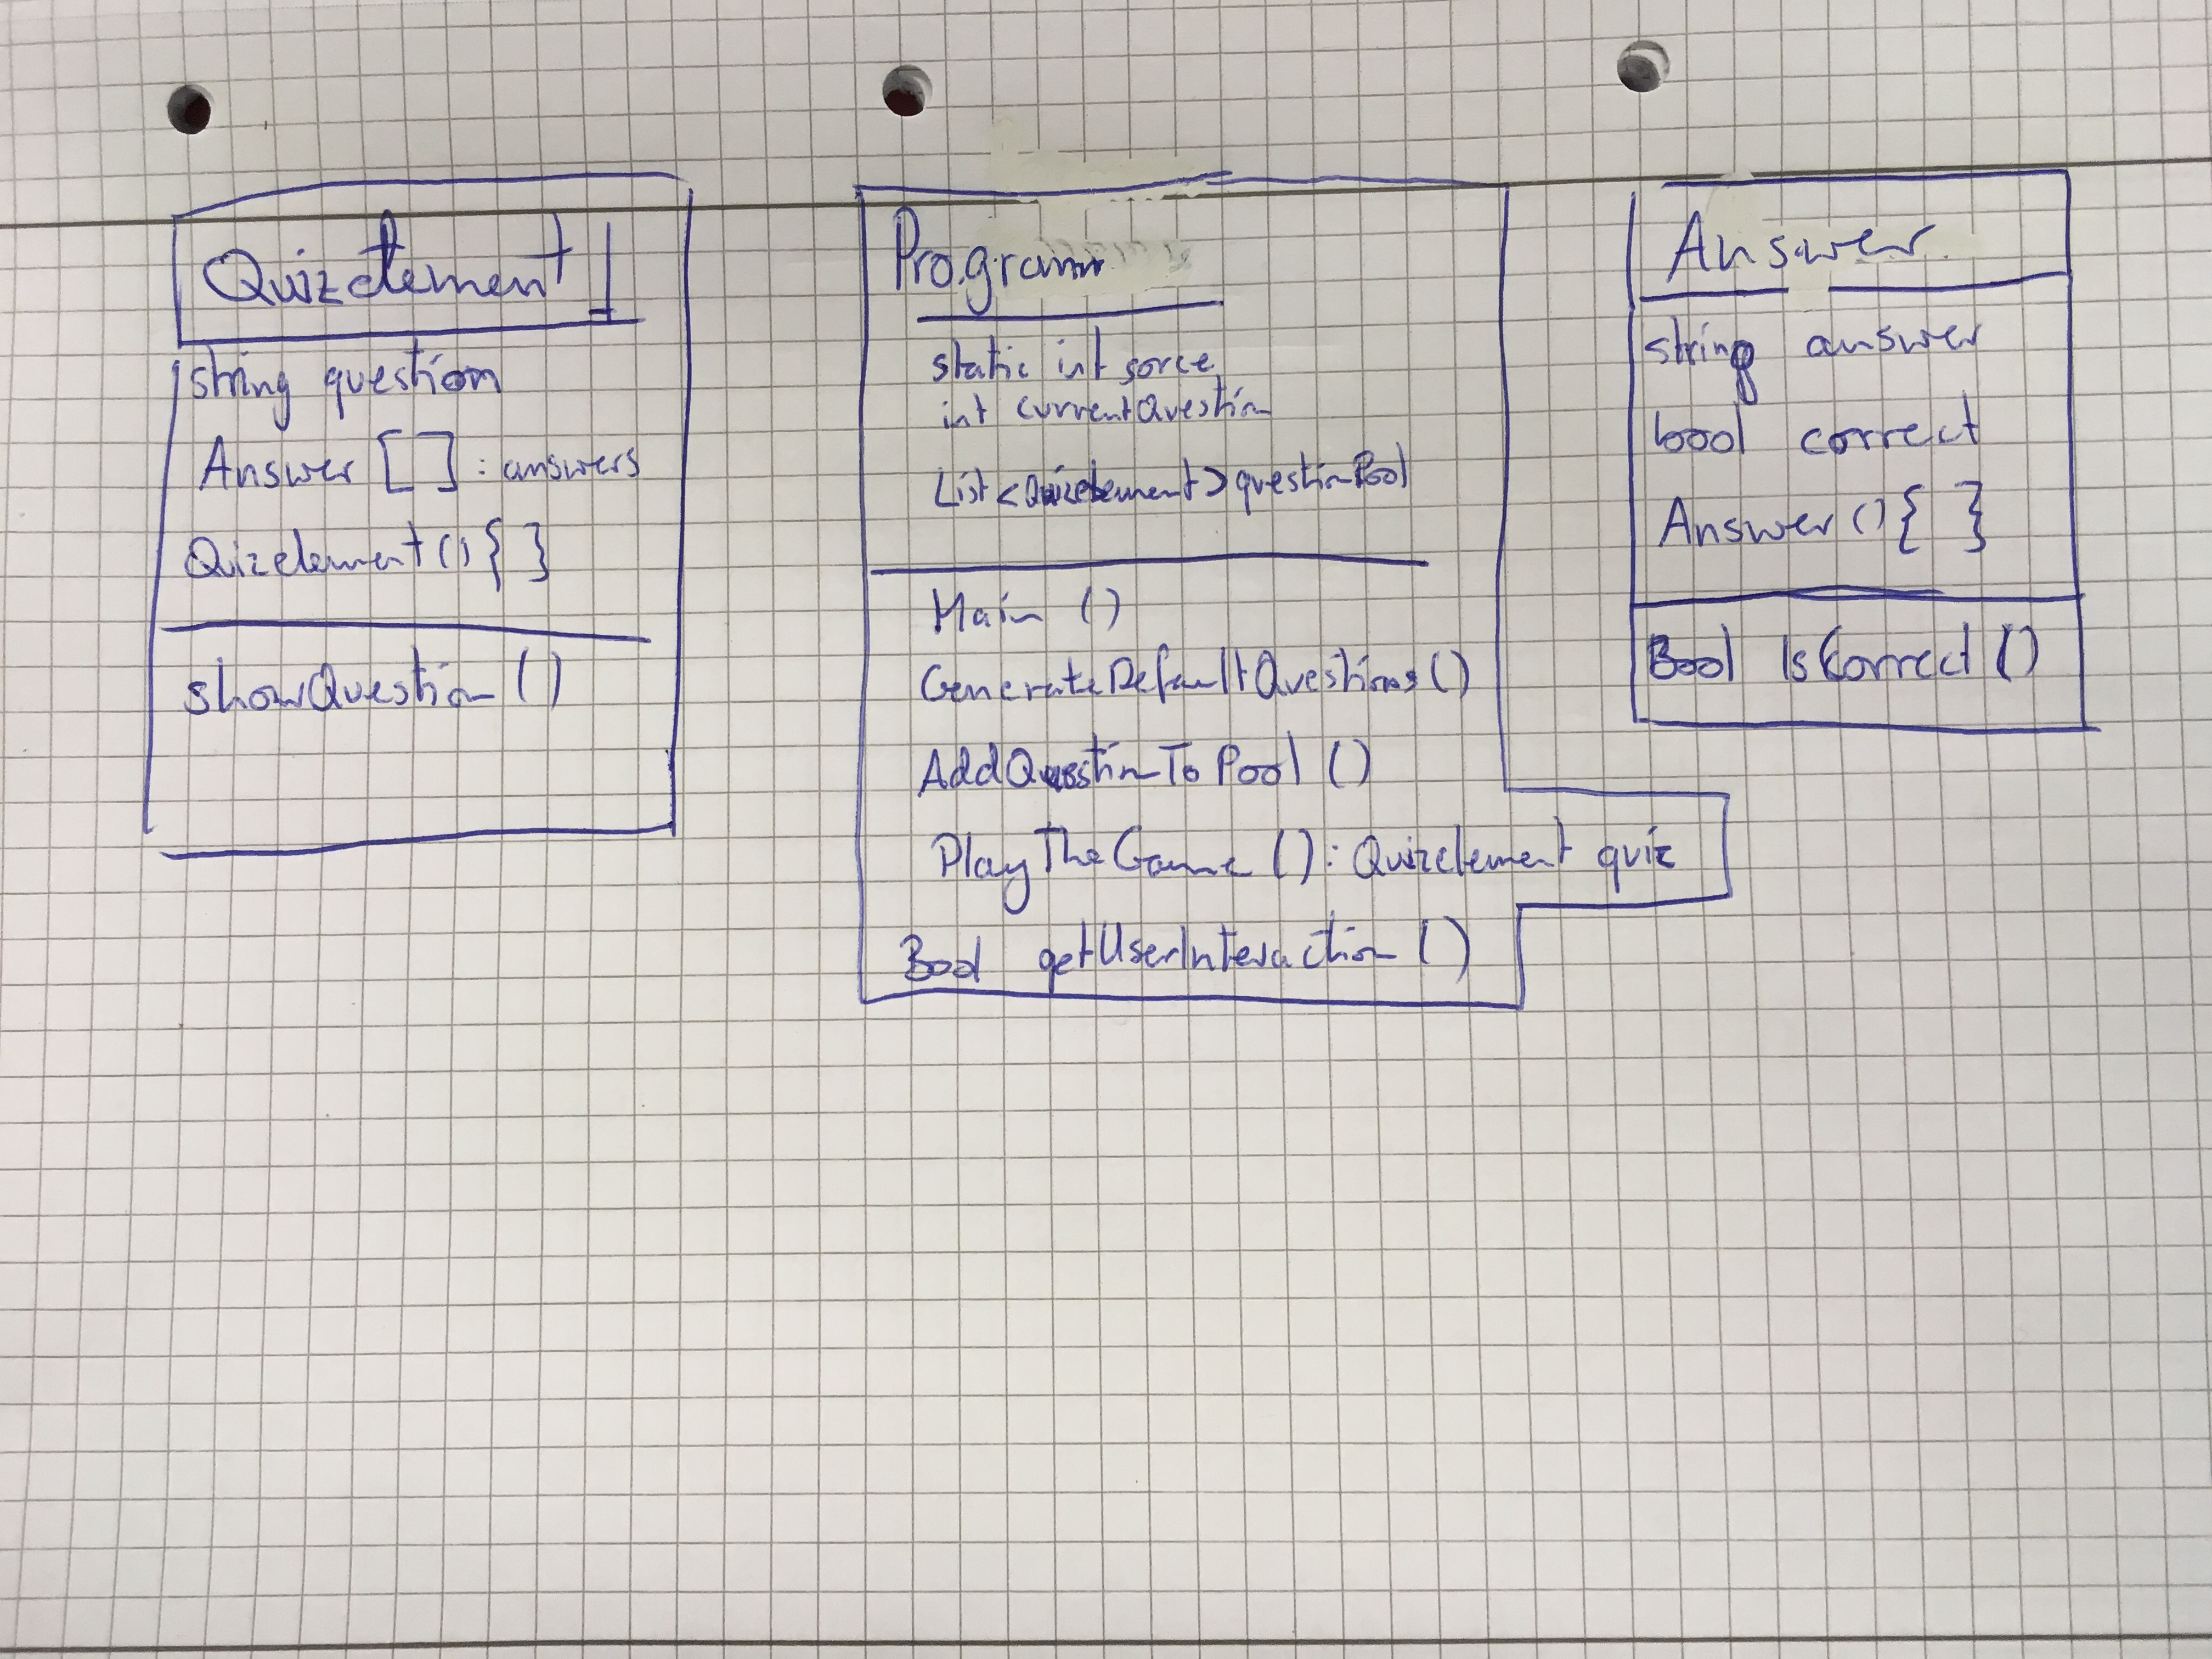 Quizelement
string question
Answer [ ] : answers
Quizelement () { }
showQuestion ()
Program
static int sorce
int currentQuestion
List <Quizelement> questionPool
Main ()
GenerateDefaultQuestions ()
AddQuestionToPool ()
PlayTheGame () : Quizelement quiz
Bool getUserInteraction ()
Answer
string answer
bool correct
Answer () { }
Bool IsCorrect ()